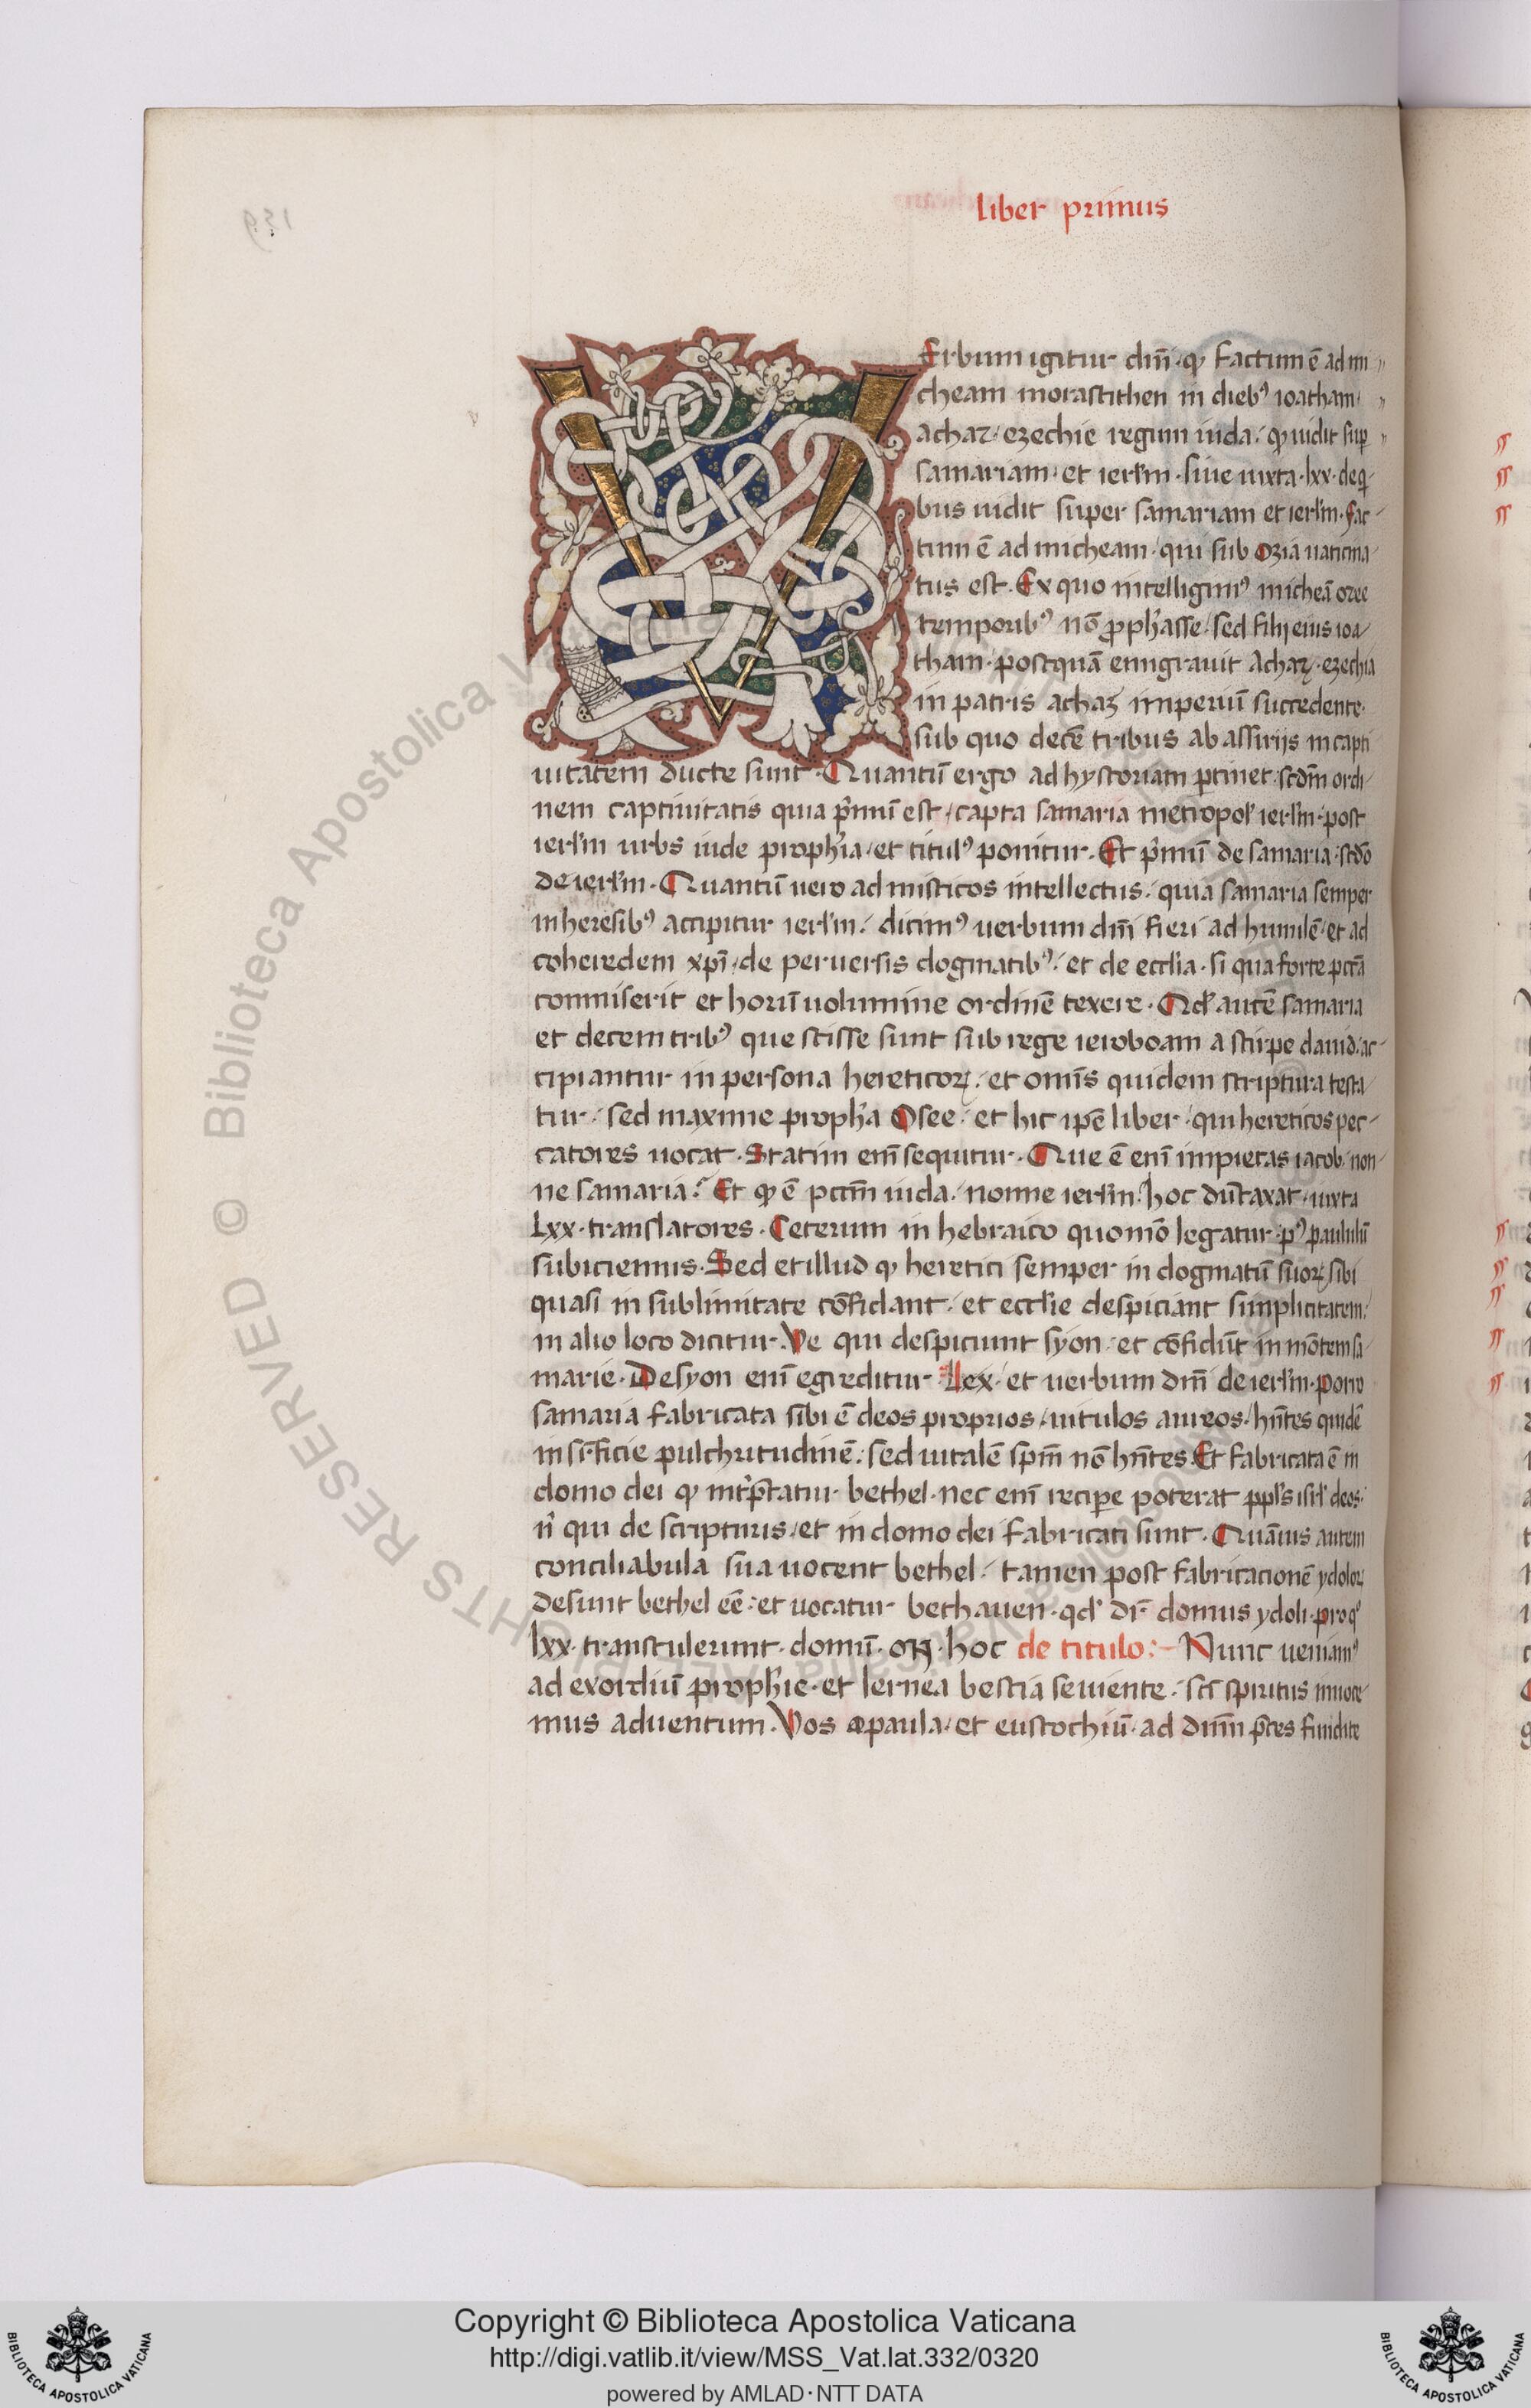 liber primus
Erbum igitur dnī · qͥ factum ē ad mi
cheam morastithen in diebꝰ ioatham
achaz / ezechie regum iuda / qͥ uidit sup
samariam · et ierl'm · siue iuxta · lxx · de q
bus uidit super samariam et ierl'm · fac
tum ē ad micheam · qui sub ozia uaticina
tus est · Ex quo intelligimꝰ micheā ozee
temporibꝰ nō ꝓph'asse / sed filij eius ioa
tham · postquā emigrauit Achaz · ezechia
in patris achaz imperiū succedente
sub quo decē tribus ab assirijs in capti
uitatem ducte sunt · Quantū ergo ad hystoriam ꝑtinet · scdm̄ ordi
nem captiuitatis quia pͥmū est / capta samaria metropol' ierl'm · post
ierl'm urbs iude proph'ia / et titulꝰ ponitur · Et pͥmū de samaria · scdō
de ierl'm · Quantū uero ad misticos intellectus / quia samaria semper
in heresibꝰ accipitur ierl'm / dicimꝰ uerbum dnī fieri ad humilē / et ad
coheredem xpī / de peruersis dogmatibꝰ / et de eccl'ia · si qua forte pccā
commiserit et horū uolumine ordinē texere · Qd' autē samaria
et decem tribꝰ que scisse sunt sub rege ieroboam a stirpe dauid / ac
cipiantur in persona hereticoꝝ / et omīs quidem scriptura testa
tur / sed maxime proph'a Osee / et hic ipē liber / qui hereticos pec
catores uocat · Statim enī sequitur · Que ē enī impietas iacob / non
ne samaria / Et qͥ ē pccm̄ iuda / nonne ierl'm / hoc dūtaxat / iuxta
Lxx · translatores · Ceterum in hebraico quomō legatur · pꝰ paululū
subiciemus · Sed et illud qͥ heretici semper in dogmatū suoꝝ sibi
quasi in sublimitate cōfidant / et eccl'ie despiciant simplicitatem
in alio loco dicitur · Ve qui despiciunt syon / et cōfidūt in mōtem sa
marie · De syon enī egreditur Lex / et uerbum dnī de ierl'm · porro
samaria fabricata sibi ē deos proprios / uitulos aureos / hn̄tes quidē
in sr̄ficie pulchritudinē / sed uitalē spm̄ nō hn̄tes · Et fabricata ē in
domo dei qͥ intͥp̄tatur bethel · nec enī recipe poterat ppl's isrl' deos
nͥ qui de scripturis / et in domo dei fabricati sunt · Quāuis autem
conciliabula sua uocent bethel / tamen post fabricacionē ydoloꝝ
desunt bethel eē / et uocatur bethauen · qd' dr̄ domus ydoli · pro qͦ
lxx · transtulerunt · domū · on · hoc de titulo :- Nunc ueniamꝰ
ad exordiū proph'ie · et lernea bestia seuiente / scī spiritus inuoce
mus aduentum · Vos o paula / et eustochiū / ad dnm̄ p̄ces fundite
139
© Biblioteca Apostolica Vaticana
RIGHTS RESERVED
Copyright © Biblioteca Apostolica Vaticana
http://digi.vatlib.it/view/MSS_Vat.lat.332/0320
powered by AMLAD·NTT DATA
BIBLIOTECA APOSTOLICA VATICANA
BIBLIOTECA APOSTOLICA VATICANA